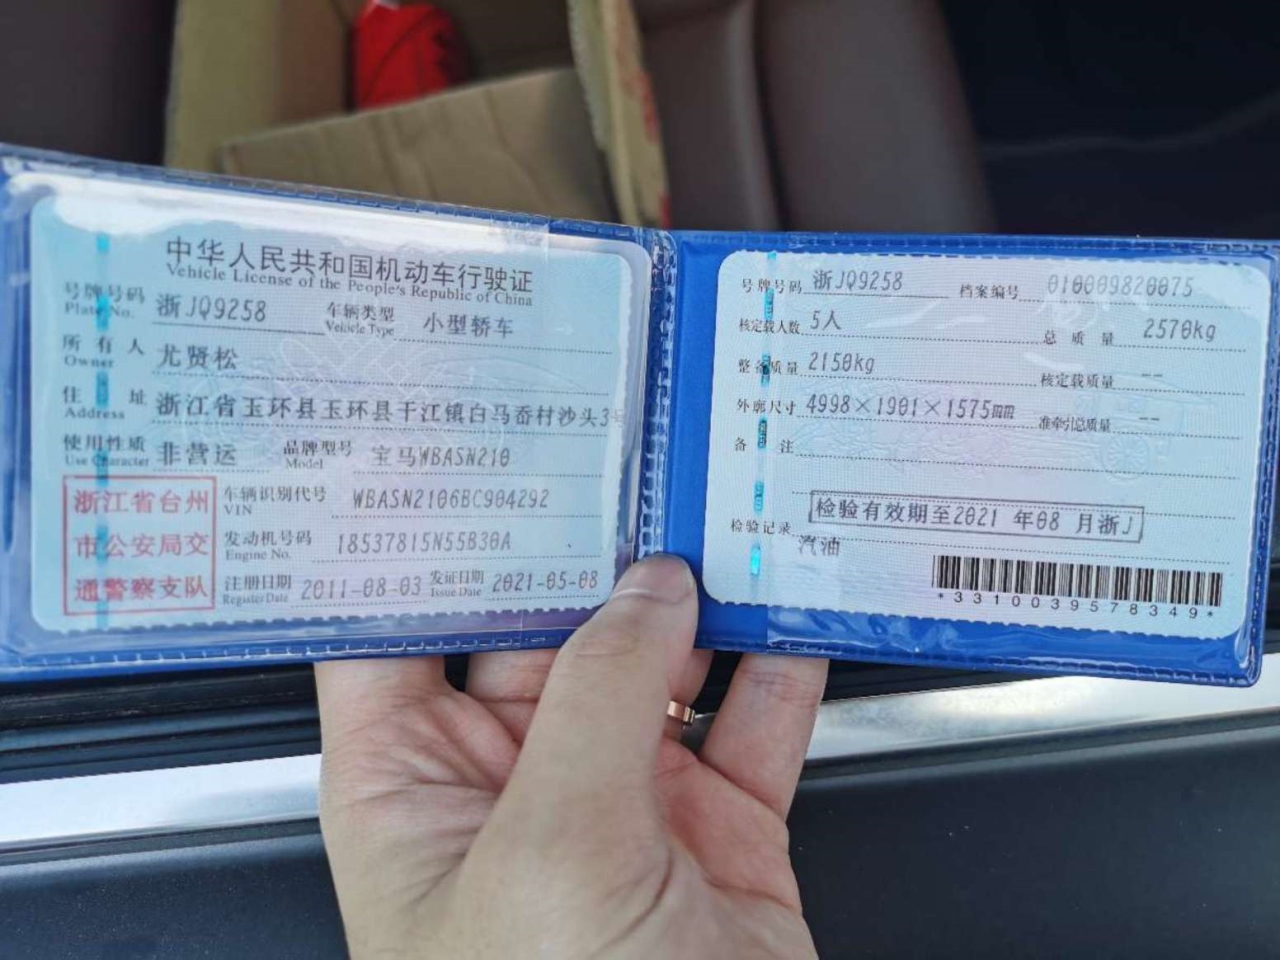 中华人民共和国机动车行驶证
Vehicle License of the People's Republic of China
号牌号码 浙JQ9258 车辆类型 小型轿车
Plate No. Vehicle Type
所有人 尤贤松
Owner
住址 浙江省玉环县玉环县干江镇白马岙村沙头3号
Address
使用性质 非营运 品牌型号 宝马WBASN210
Use Character Model
浙江省台州
市公安局交
通警察支队
车辆识别代号 WBASN2106BC904292
VIN
发动机号码 18537815N55B30A
Engine No.
注册日期 2011-08-03 发证日期 2021-05-08
Register Date Issue Date
号牌号码 浙JQ9258 档案编号 010009820075
核定载人数 5人 总质量 2570kg
整备质量 2150kg 核定载质量 --
外廓尺寸 4998×1901×1575mm 准牵引总质量 --
备注
检验有效期至2021 年08 月浙J
检验记录
汽油
*3310039578349*